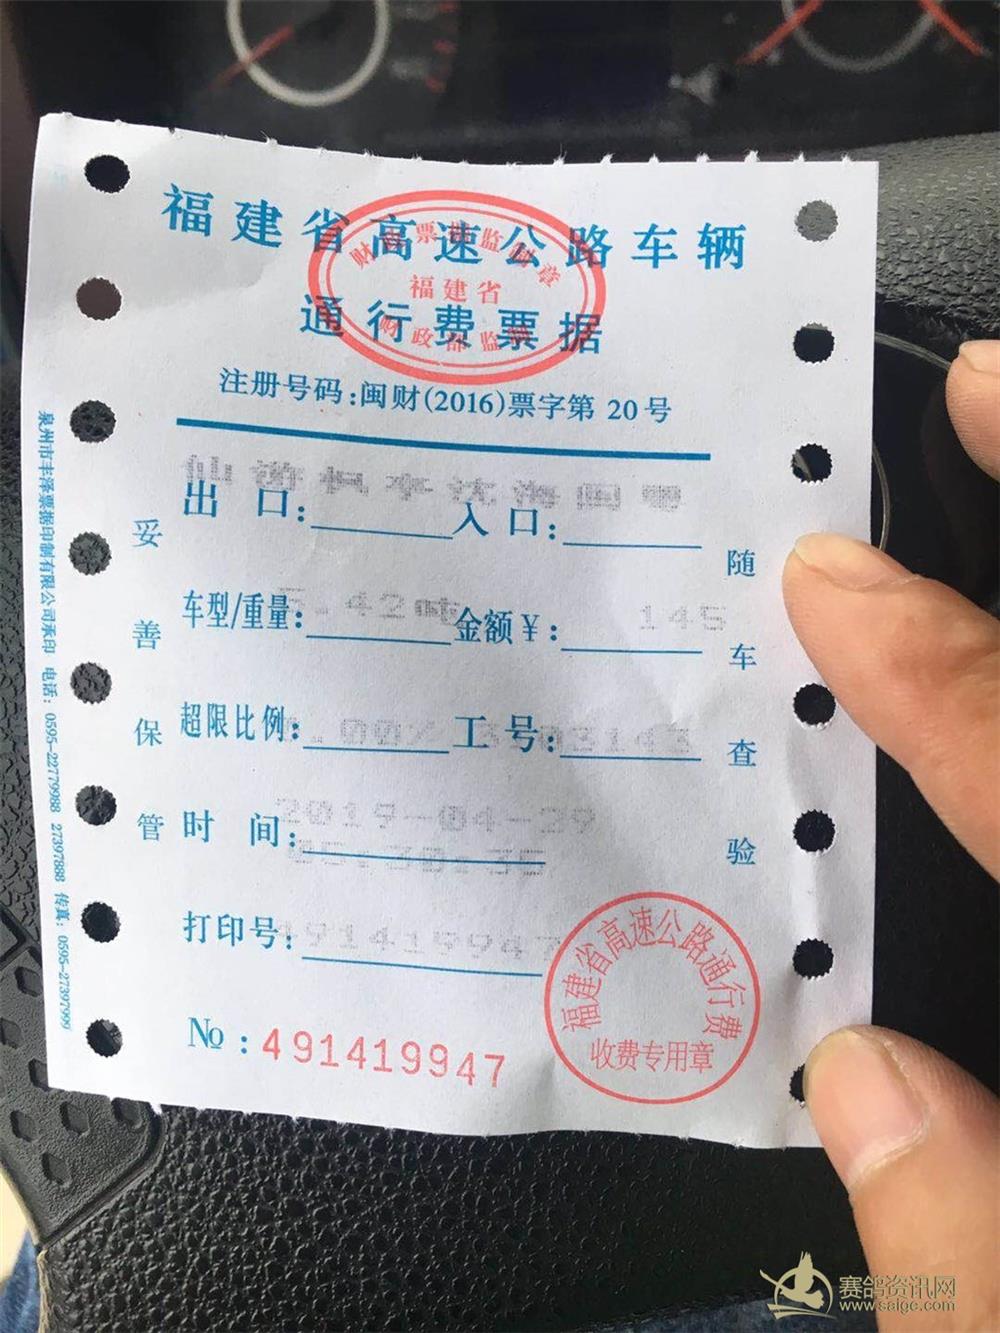 福建省高速公路车辆
通行费票据
福建省
注册号码:闽财(2016)票字第 20号
仙游枫亭沈海闽粤
出 口: 入 口:
车型/重量: 5.42吨 金额￥: 145
超限比例: 0.00% 工号:
时 间: 2019-04-29
打印号: 491419947
№ : 491419947
福建省高速公路通行费
收费专用章
妥善保管
随车查验
泉州市丰泽票据印制有限公司承印 电话: 0595-22779988 27397888 传真: 0595-27397999
赛鸽资讯网
www.saige.com